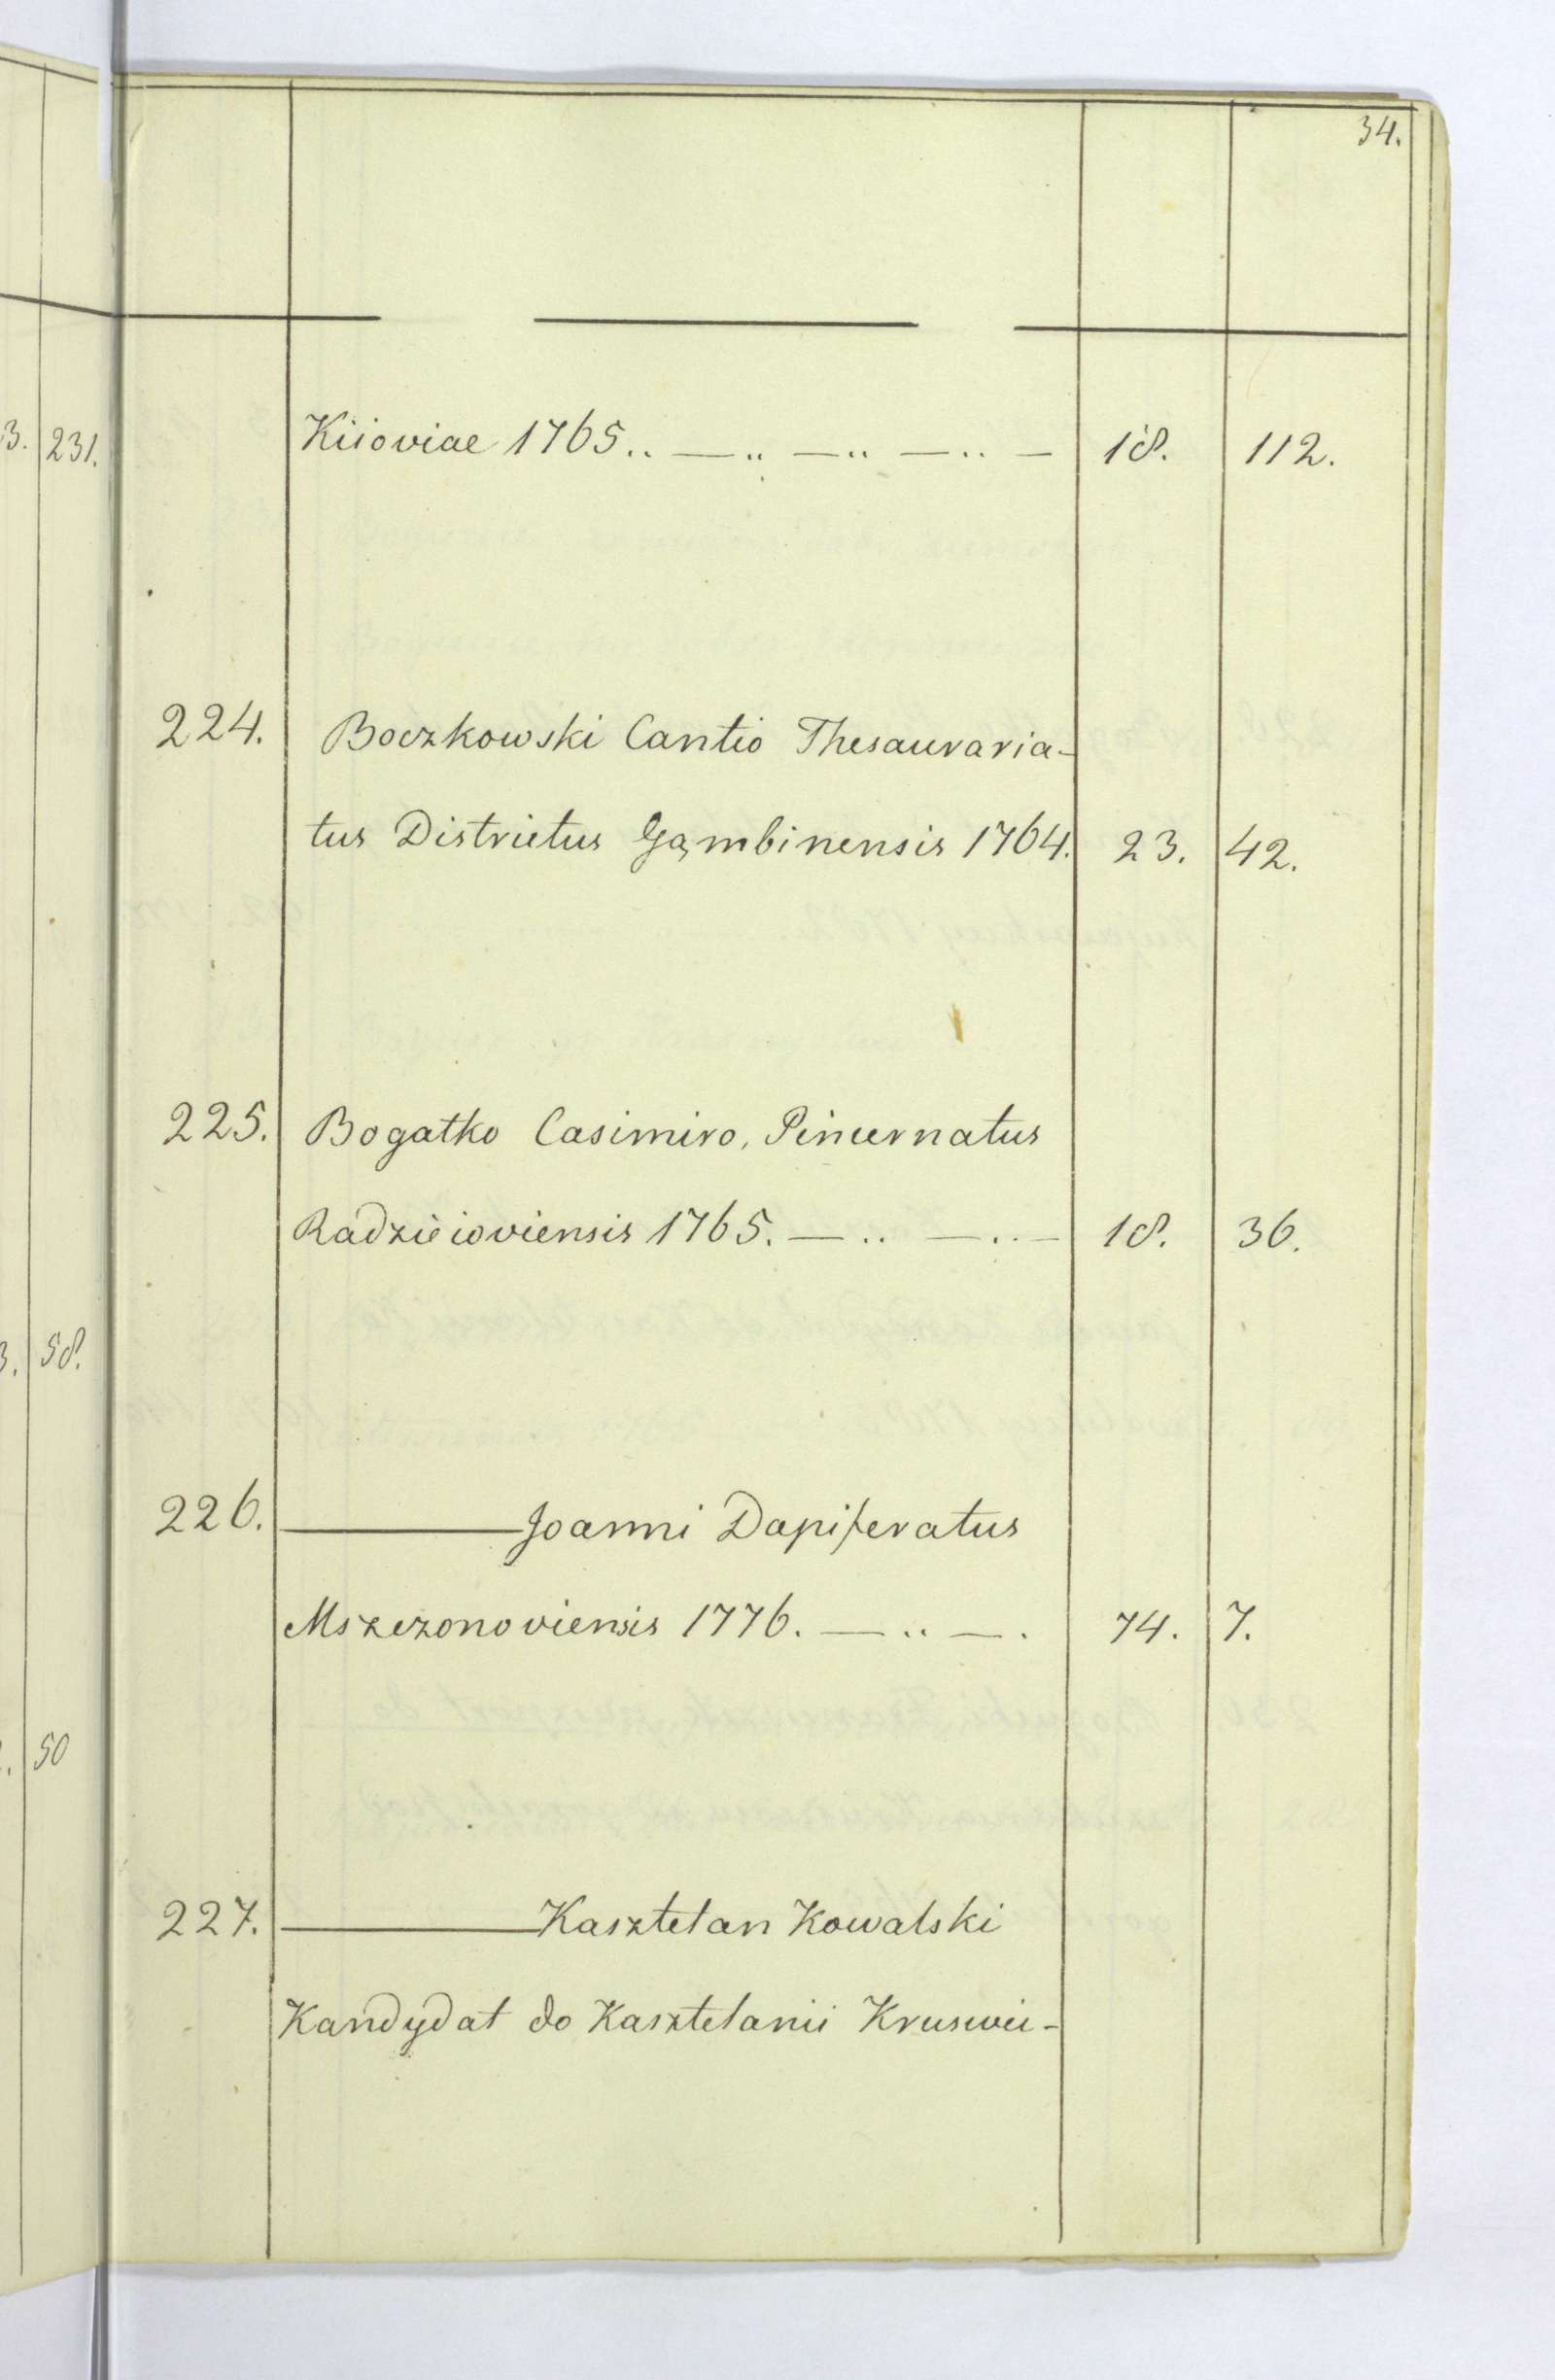 34.
3. 231.
Kiioviae 1765.. — .. — .. — .. — 18. 112.
224. Boczkowski Cantio Thesauraria-
tus Districtus Gąmbinensis 1764. 23. 42.
225. Bogatko Casimiro, Pincernatus
Radzieioviensis 1765. — .. — .. — 18. 36.
58.
226. ——— Joanni Dapiferatus
Mszczonoviensis 1776. — .. — . 74. 7.
50
227. ——— Kasztelan Kowalski
Kandydat do Kasztelanii Kruswic-